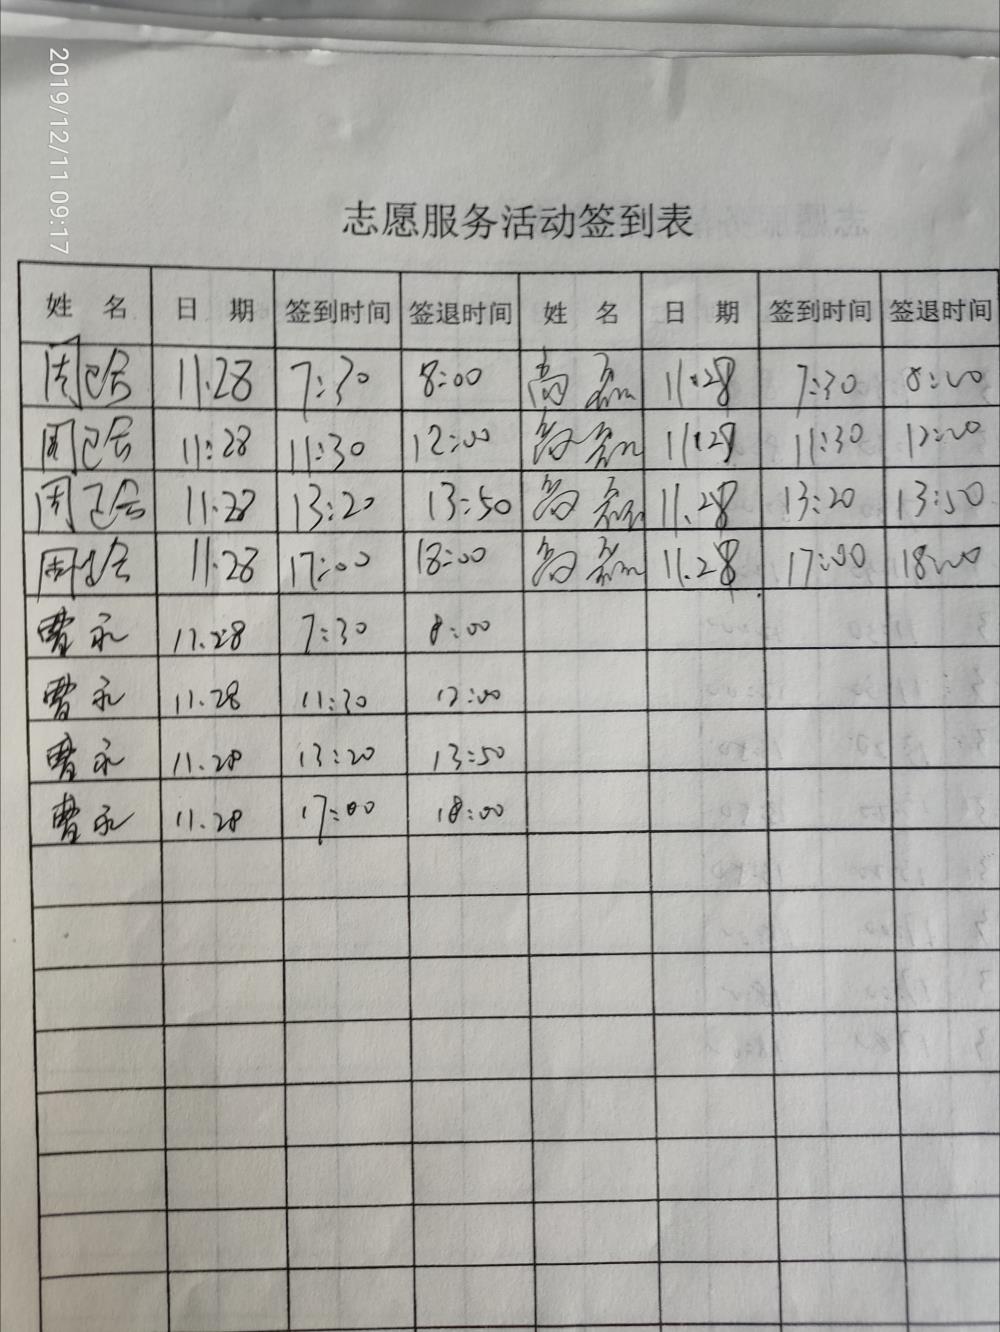 2019/12/11 09:17
志愿服务活动签到表
姓 名 日 期 签到时间 签退时间 姓 名 日 期 签到时间 签退时间
周 11.28 7:30 8:00 磊 11.28 7:30 8:00
周 11:28 11:30 12:00 磊 11:28 11:30 12:00
周 11.28 13:20 13:50 磊 11.28 13:20 13:50
周 11.28 17:00 18:00 磊 11.28 17:00 18:00
曹永 11.28 7:30 8:00
曹永 11.28 11:30 12:00
曹永 11.28 13:20 13:50
曹永 11.28 17:00 18:00